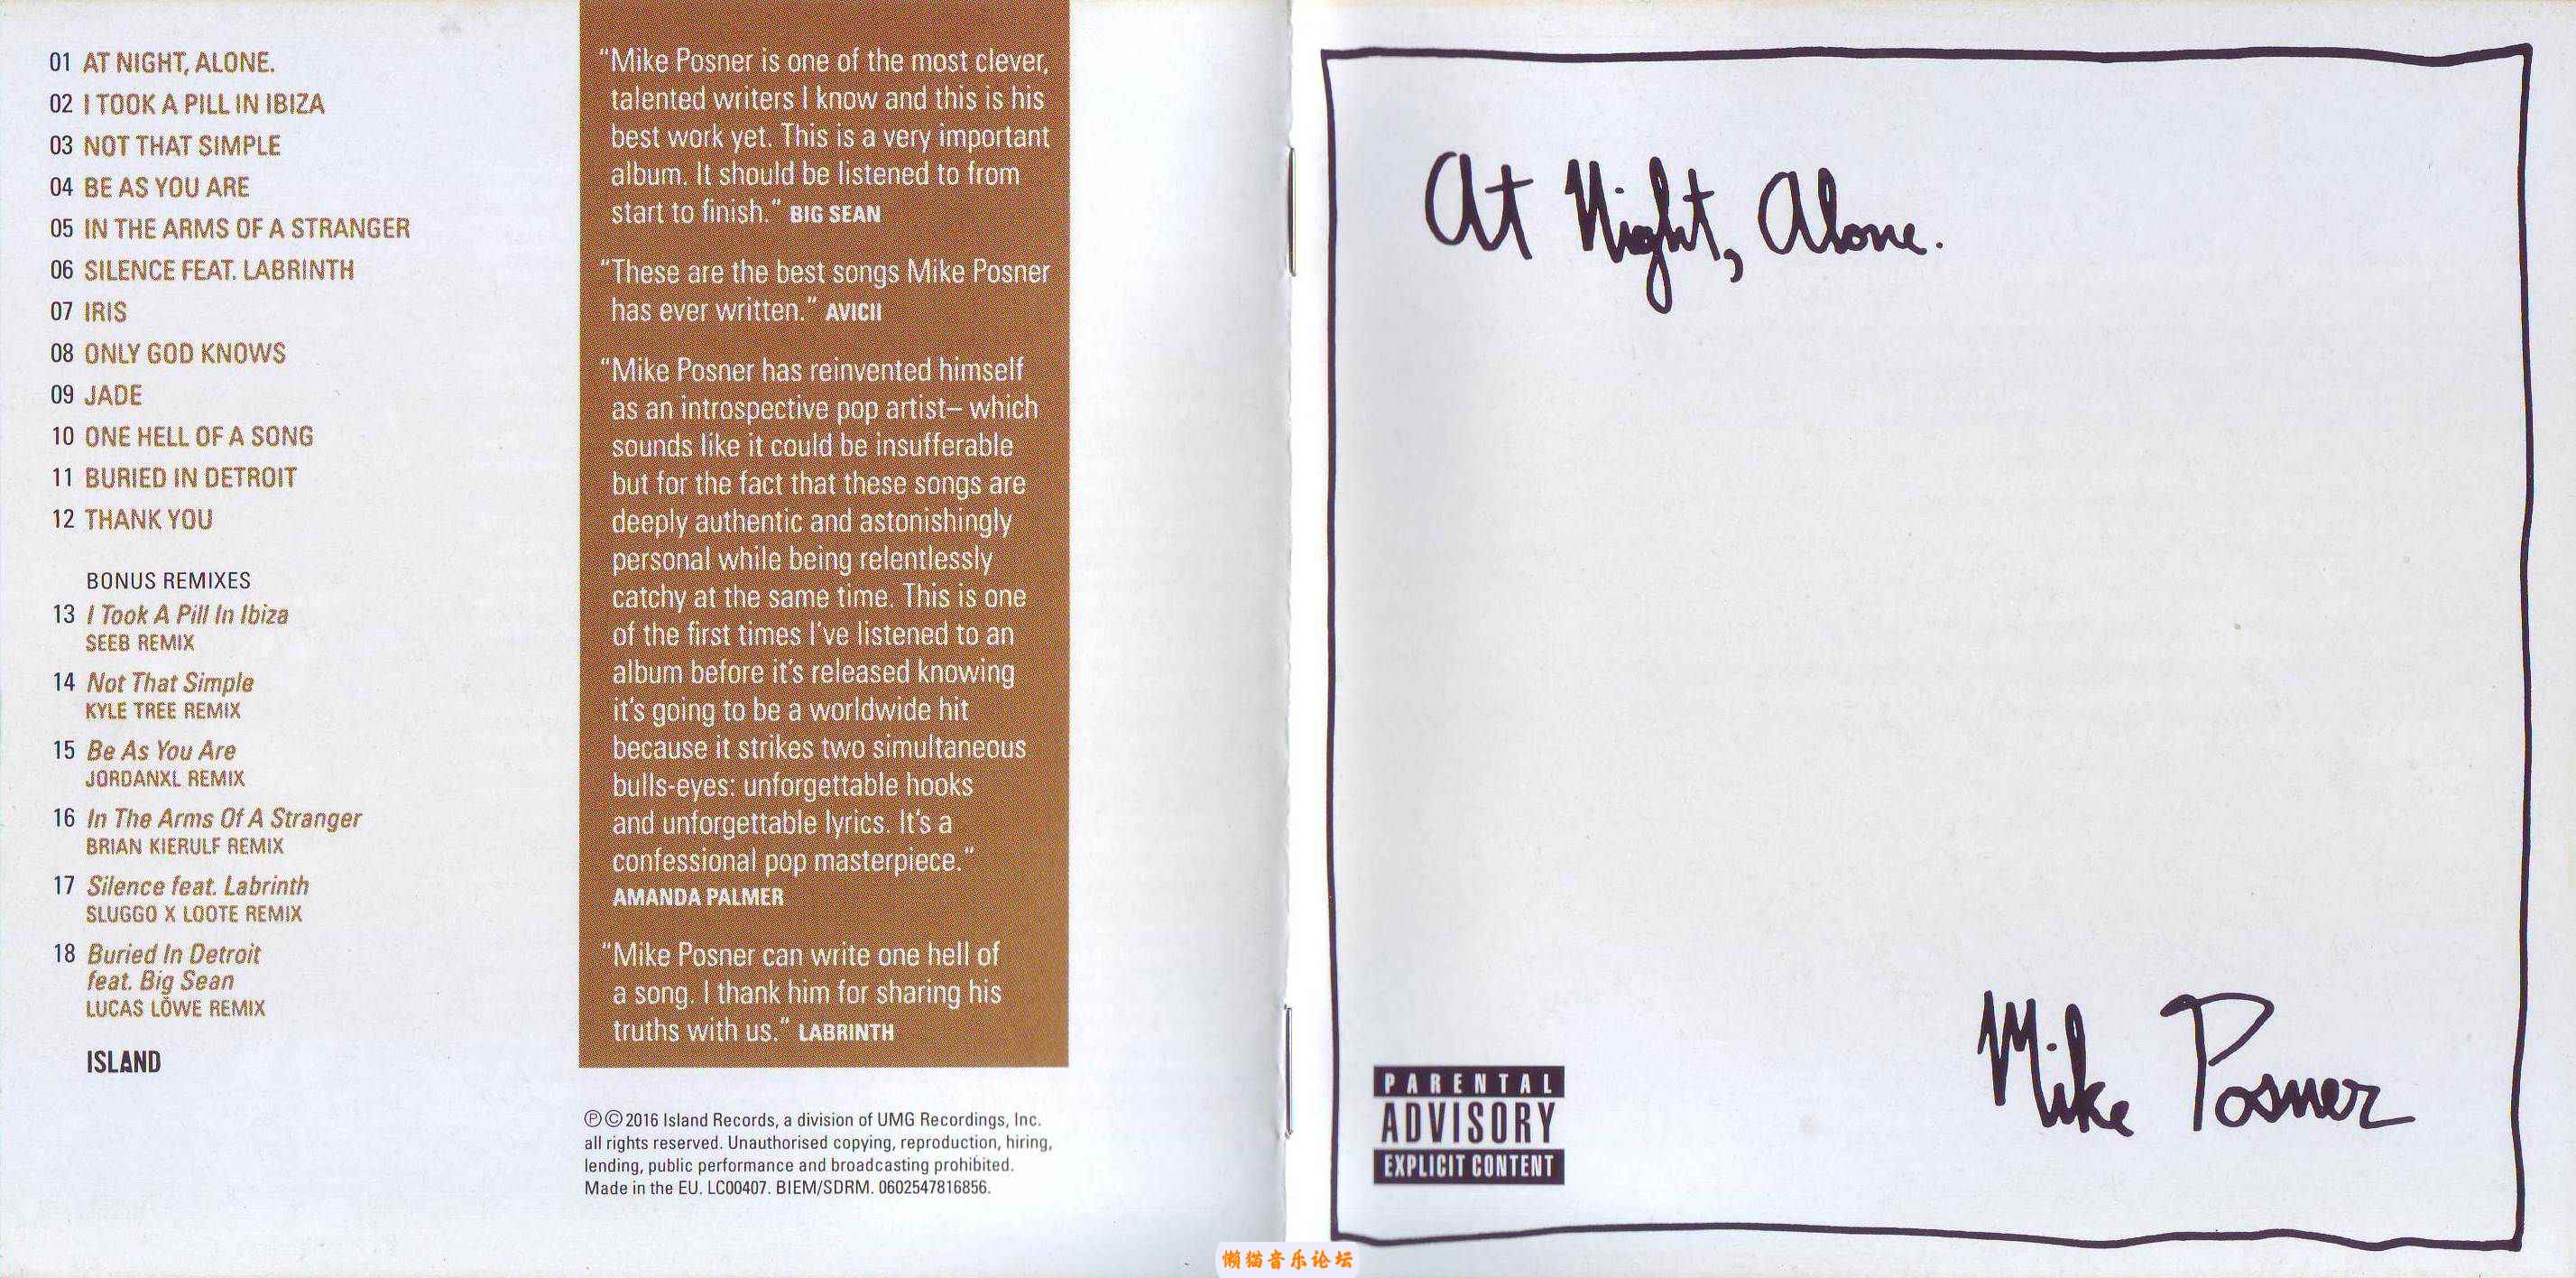 01 AT NIGHT, ALONE.
02 I TOOK A PILL IN IBIZA
03 NOT THAT SIMPLE
04 BE AS YOU ARE
05 IN THE ARMS OF A STRANGER
06 SILENCE FEAT. LABRINTH
07 IRIS
08 ONLY GOD KNOWS
09 JADE
10 ONE HELL OF A SONG
11 BURIED IN DETROIT
12 THANK YOU
BONUS REMIXES
13 I Took A Pill In Ibiza
SEEB REMIX
14 Not That Simple
KYLE TREE REMIX
15 Be As You Are
JORDANXL REMIX
16 In The Arms Of A Stranger
BRIAN KIERULF REMIX
17 Silence feat. Labrinth
SLUGGO X LOOTE REMIX
18 Buried In Detroit
feat. Big Sean
LUCAS LÖWE REMIX
ISLAND
“Mike Posner is one of the most clever,
talented writers I know and this is his
best work yet. This is a very important
album. It should be listened to from
start to finish.” BIG SEAN
“These are the best songs Mike Posner
has ever written.” AVICII
“Mike Posner has reinvented himself
as an introspective pop artist– which
sounds like it could be insufferable
but for the fact that these songs are
deeply authentic and astonishingly
personal while being relentlessly
catchy at the same time. This is one
of the first times I've listened to an
album before it's released knowing
it's going to be a worldwide hit
because it strikes two simultaneous
bulls-eyes: unforgettable hooks
and unforgettable lyrics. It's a
confessional pop masterpiece.”
AMANDA PALMER
“Mike Posner can write one hell of
a song. I thank him for sharing his
truths with us.” LABRINTH
℗©2016 Island Records, a division of UMG Recordings, Inc.
all rights reserved. Unauthorised copying, reproduction, hiring,
lending, public performance and broadcasting prohibited.
Made in the EU. LC00407. BIEM/SDRM. 0602547816856.
At Night, Alone.
Mike Posner
PARENTAL
ADVISORY
EXPLICIT CONTENT
懒猫音乐论坛